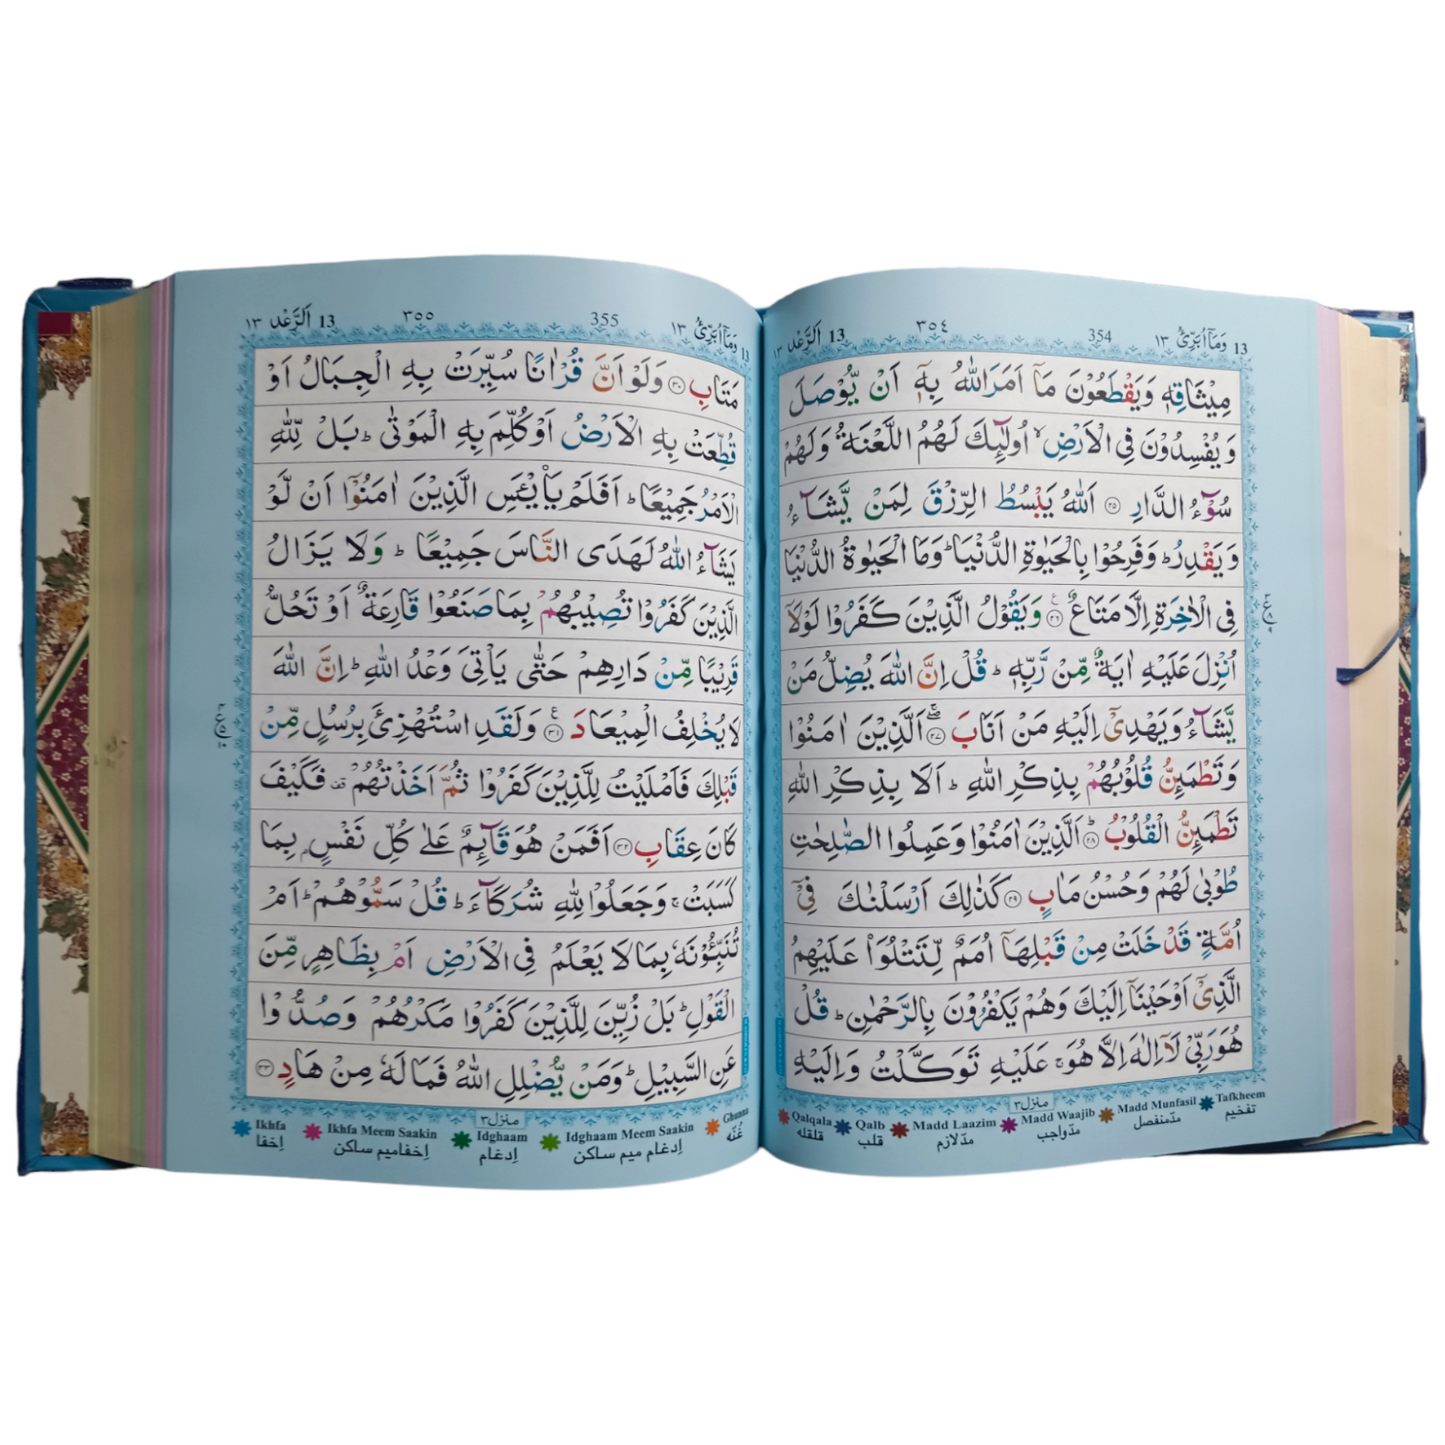 13 وَمَآ اُبَرِّئُ ١٣ 354 ٣٥٤ 13 اَلرَّعْد ١٣
مِيْثَاقِهٖ وَيَقْطَعُوْنَ مَآ اَمَرَاللّٰهُ بِهٖٓ اَنْ يُّوْصَلَ
وَ يُفْسِدُوْنَ فِى الْاَرْضِ ۙ اُولٰٓئِكَ لَهُمُ اللَّعْنَةُ وَلَهُمْ
سُوْٓءُ الدَّارِ ۝٢٥ اَللّٰهُ يَبْسُطُ الرِّزْقَ لِمَنْ يَّشَآءُ
وَ يَقْدِرُ ؕ وَفَرِحُوْا بِالْحَيٰوةِ الدُّنْيَا ؕ وَمَا الْحَيٰوةُ الدُّنْيَا
فِى الْاٰخِرَةِ اِلَّا مَتَاعٌ ۝٢٦ وَيَقُوْلُ الَّذِيْنَ كَفَرُوْا لَوْلَاۤ
اُنْزِلَ عَلَيْهِ اٰيَةٌ مِّنْ رَّبِّهٖ ؕ قُلْ اِنَّ اللّٰهَ يُضِلُّ مَنْ
يَّشَآءُ وَيَهْدِىْٓ اِلَيْهِ مَنْ اَنَابَ ۝٢٧ اَلَّذِيْنَ اٰمَنُوْا
وَتَطْمَئِنُّ قُلُوْبُهُمْ بِذِكْرِ اللّٰهِ ؕ اَلَا بِذِكْرِ اللّٰهِ
تَطْمَئِنُّ الْقُلُوْبُ ۝٢٨ اَلَّذِيْنَ اٰمَنُوْا وَعَمِلُوا الصّٰلِحٰتِ
طُوْبٰى لَهُمْ وَحُسْنُ مَاٰبٍ ۝٢٩ كَذٰلِكَ اَرْسَلْنٰكَ فِىْٓ
اُمَّةٍ قَدْ خَلَتْ مِنْ قَبْلِهَاۤ اُمَمٌ لِّتَتْلُوَا۟ عَلَيْهِمُ
الَّذِىْٓ اَوْحَيْنَاۤ اِلَيْكَ وَهُمْ يَكْفُرُوْنَ بِالرَّحْمٰنِ ؕ قُلْ
هُوَرَبِّىْ لَاۤ اِلٰهَ اِلَّا هُوَ ۚ عَلَيْهِ تَوَكَّلْتُ وَاِلَيْهِ
منزل ٣
Qalqala Qalb Madd Laazim Madd Waajib Madd Munfasil Tafkheem
قلقله قلب مدّ لازم مدّ واجب مدّ منفصل تفخيم
13 وَمَآ اُبَرِّئُ ١٣ 355 ٣٥٥ 13 اَلرَّعْد ١٣
مَتَابِ ۝٣٠ وَلَوْ اَنَّ قُرْاٰنًا سُيِّرَتْ بِهِ الْجِبَالُ اَوْ
قُطِّعَتْ بِهِ الْاَرْضُ اَوْ كُلِّمَ بِهِ الْمَوْتٰى ؕ بَلْ لِّلّٰهِ
الْاَمْرُ جَمِيْعًا ؕ اَفَلَمْ يَا۟يْـَٔسِ الَّذِيْنَ اٰمَنُوْٓا اَنْ لَّوْ
يَشَآءُ اللّٰهُ لَهَدَى النَّاسَ جَمِيْعًا ؕ وَلَا يَزَالُ
الَّذِيْنَ كَفَرُوْا تُصِيْبُهُمْ بِمَا صَنَعُوْا قَارِعَةٌ اَوْ تَحُلُّ
قَرِيْبًا مِّنْ دَارِهِمْ حَتّٰى يَاْتِىَ وَعْدُ اللّٰهِ ؕ اِنَّ اللّٰهَ
لَا يُخْلِفُ الْمِيْعَادَ ۝٣١ وَلَقَدِ اسْتُهْزِئَ بِرُسُلٍ مِّنْ
قَبْلِكَ فَاَمْلَيْتُ لِلَّذِيْنَ كَفَرُوْا ثُمَّ اَخَذْتُهُمْ قف فَكَيْفَ
كَانَ عِقَابِ ۝٣٢ اَفَمَنْ هُوَ قَآئِمٌ عَلٰى كُلِّ نَفْسٍۢ بِمَا
كَسَبَتْ ۚ وَجَعَلُوْا لِلّٰهِ شُرَكَآءَ ؕ قُلْ سَمُّوْهُمْ ؕ اَمْ
تُنَبِّـُٔوْنَهٗ بِمَا لَا يَعْلَمُ فِى الْاَرْضِ اَمْ بِظَاهِرٍ مِّنَ
الْقَوْلِ ؕ بَلْ زُيِّنَ لِلَّذِيْنَ كَفَرُوْا مَكْرُهُمْ وَصُدُّوْا
عَنِ السَّبِيْلِ ؕ وَمَنْ يُّضْلِلِ اللّٰهُ فَمَا لَهٗ مِنْ هَادٍ ۝٣٣
منزل ٣
Ikhfa Ikhfa Meem Saakin Idghaam Idghaam Meem Saakin Ghunna
اِخفا اِخفا ميم ساكن اِدغام اِدغام ميم ساكن غُنّه